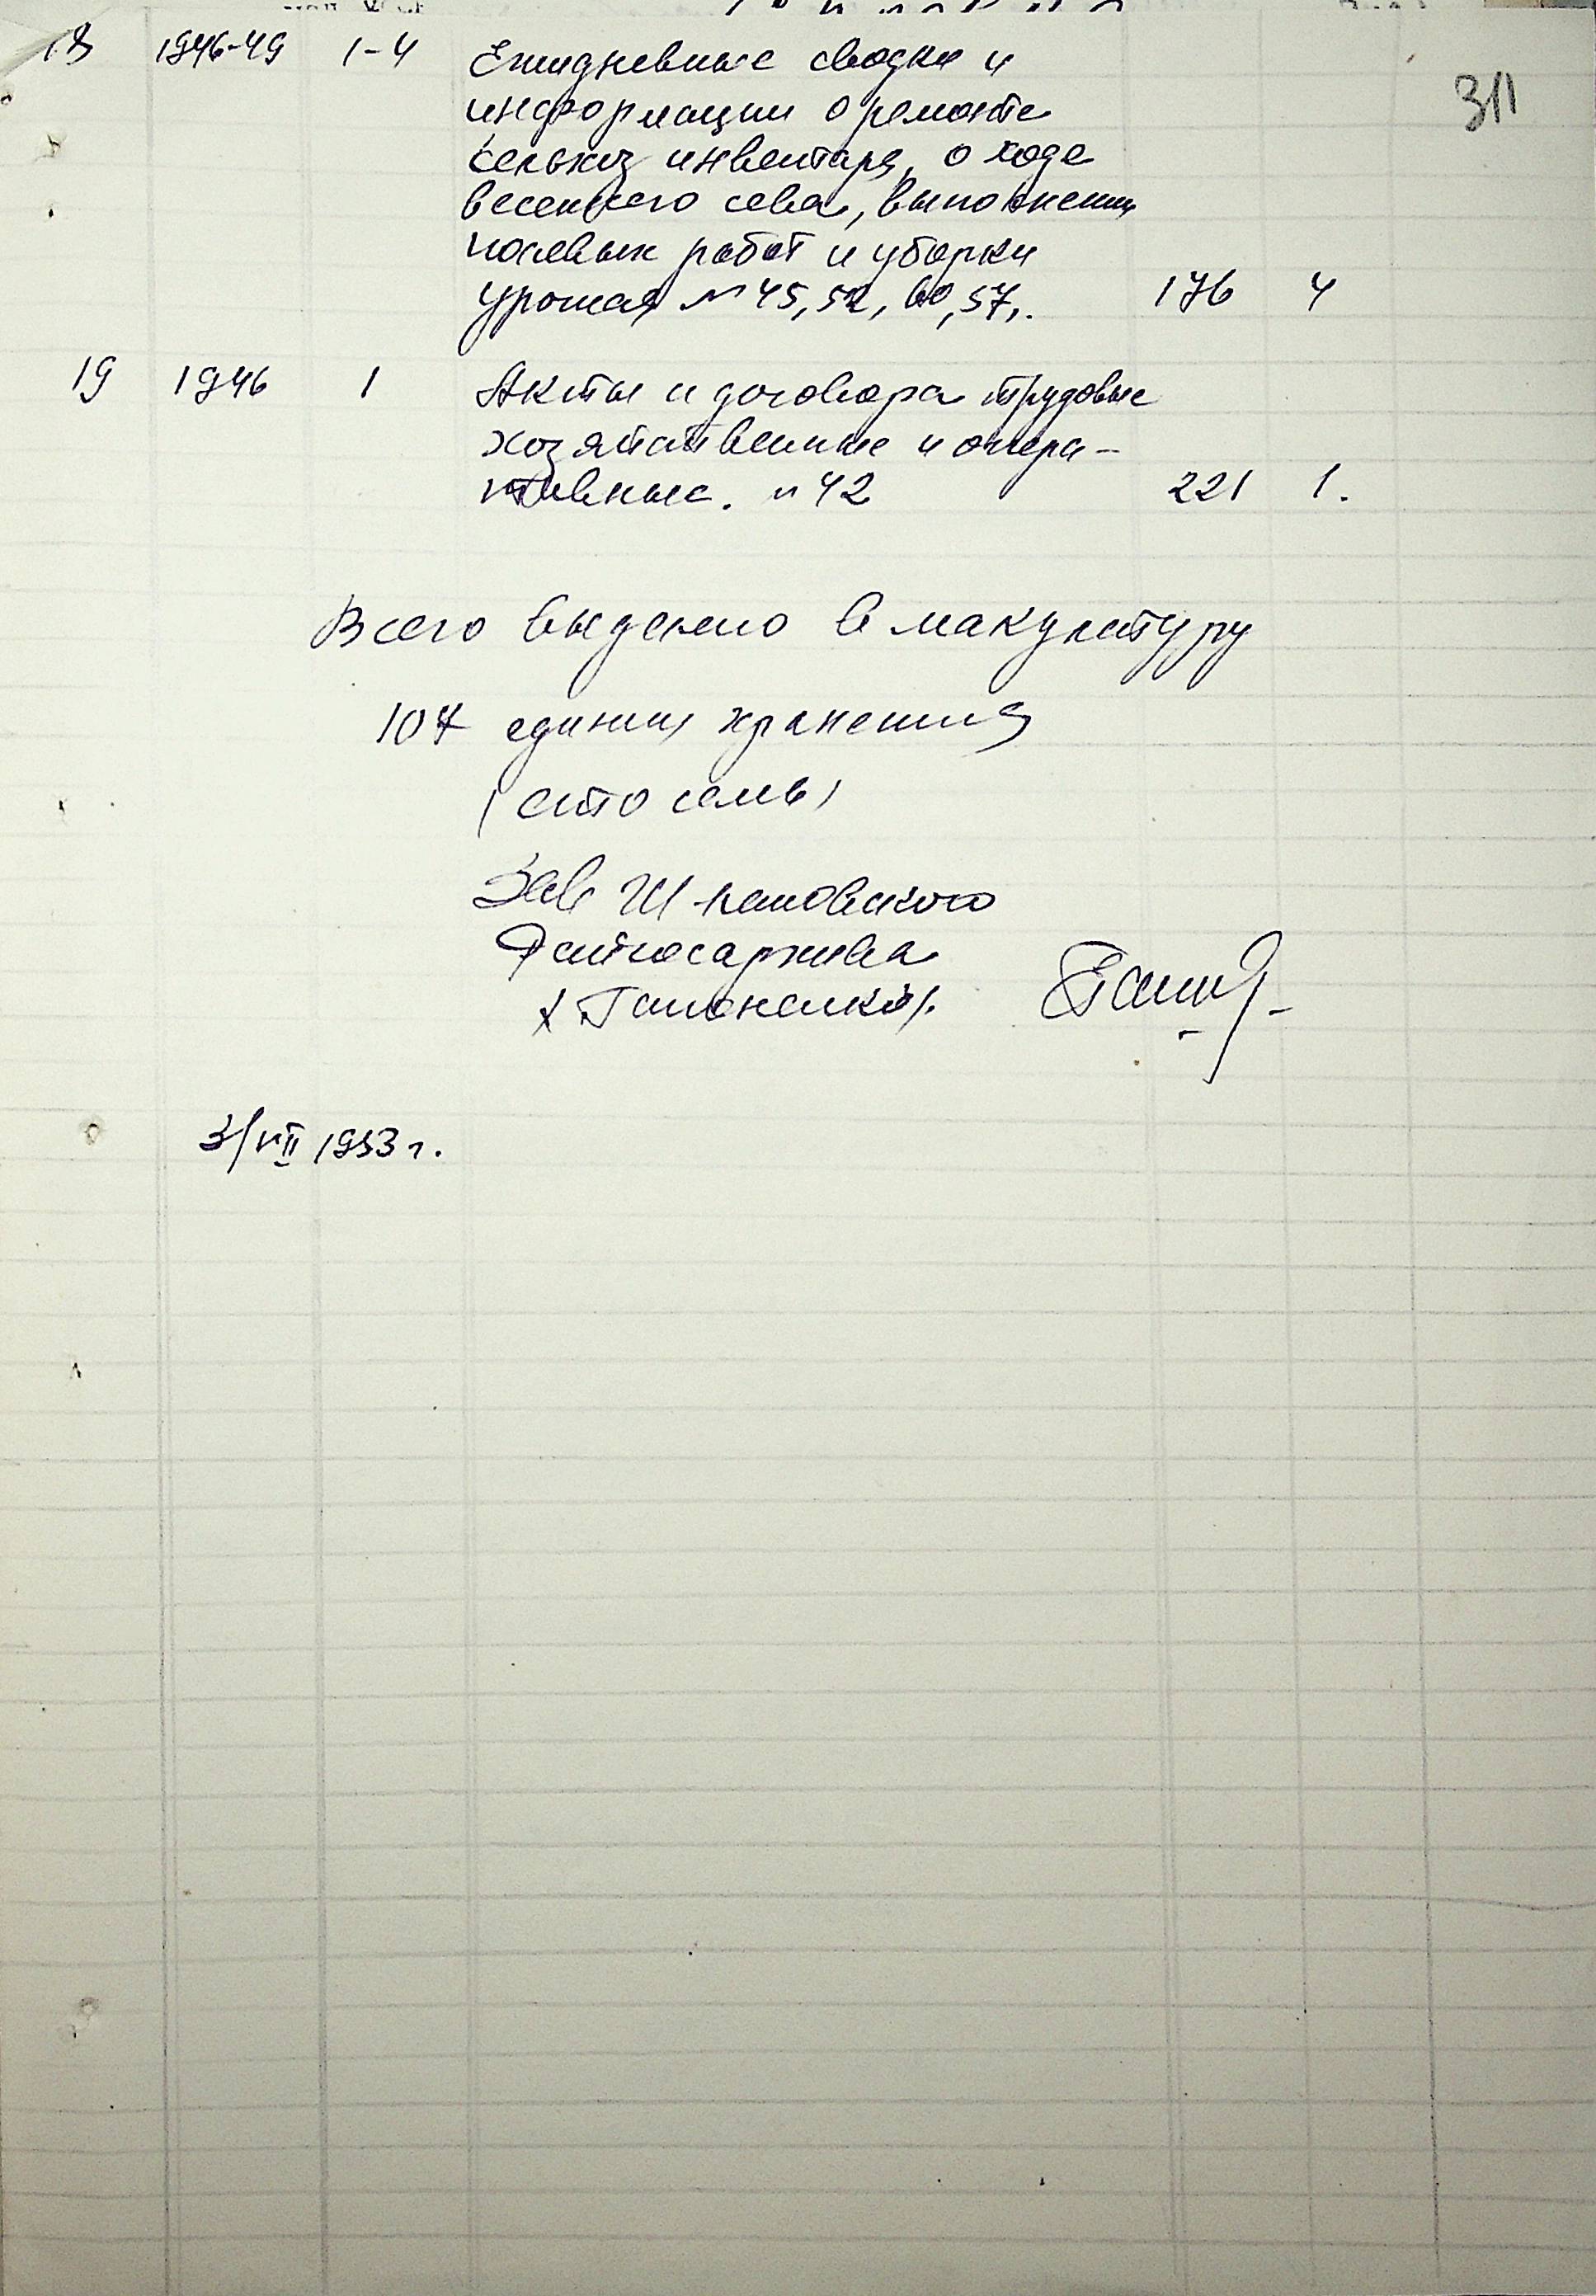 311
18 1946-49 1-4 Ежедневные сводки и
информации о ремонте
сельхоз инвентаря, о ходе
весеннего сева, выполнении
полевых работ и уборки
урожая № 45, 52, 60, 57,. 176 4
19 1946 1 Акты и договора трудовые
хозяйственные и опера-
тивные. № 42 221 1.
Всего выделено в макулатуру
107 единиц хранения
(сто семь)
Зав Шполовского
Райгосархива
Гапоненко
3/VII 1953 г.